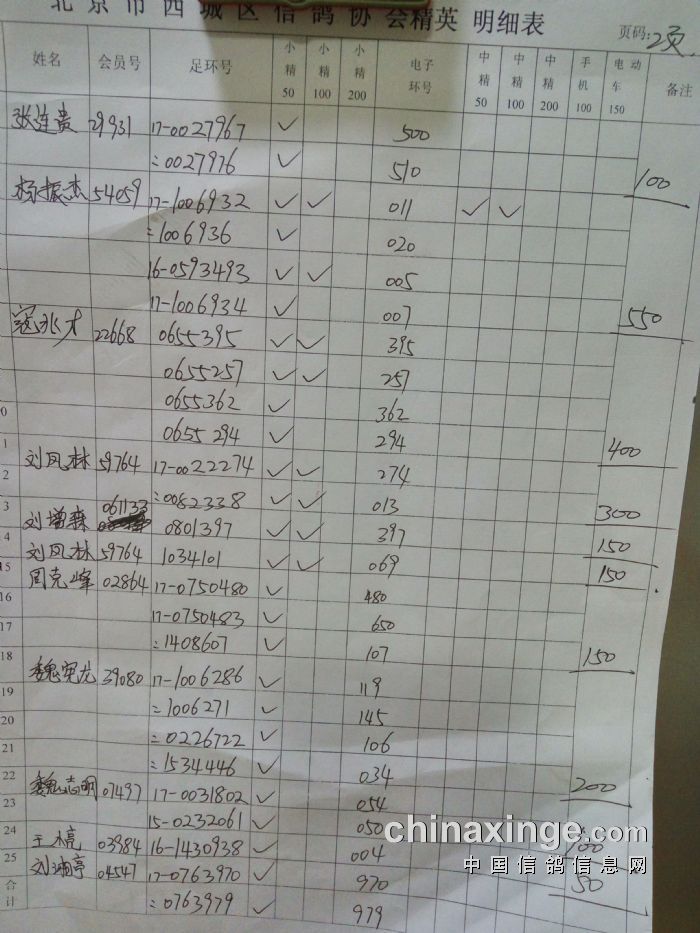 北京市西城区信鸽协会精英 明细表
页码:2页
姓名 会员号 足环号 小精50 小精100 小精200 电子环号 中精50 中精100 中精200 手机100 电动车150 备注
张连贵 29931 17-0027967 ✓ 500
:0027976 ✓ 510 100
杨振杰 54059 17-1006932 ✓ ✓ 011 ✓ ✓
:1006936 ✓ 020
16-0593493 ✓ ✓ 005
17-1006934 ✓ 007 550
寇兆才 22668 0655395 ✓ ✓ 395
0655257 ✓ ✓ 257
0655362 ✓ 362
0 0655294 ✓ 294 400
1 刘凤林 59764 17-0022274 ✓ ✓ 274
2 :0082338 ✓ ✓ 013 300
3 刘增森 061133 0801397 ✓ ✓ 397 150
4 刘凤林 59764 1034101 ✓ ✓ 069 150
15 周克峰 02864 17-0750480 ✓ 480
16 17-0750483 ✓ 650
17 :1408607 ✓ 107 150
18 魏宪龙 39080 17-1006286 ✓ 119
19 :1006271 ✓ 145
20 :0226722 ✓ 106
21 :1534446 ✓ 034 200
22 魏志明 07497 17-0031802 ✓ 054
23 15-0232061 ✓ 050 100
24 王 亮 03984 16-1430938 ✓ 004
25 刘 亭 04547 17-0763970 ✓ 970 50
合计 :0763979 ✓ 979
chinaxinge.com
中国信鸽信息网